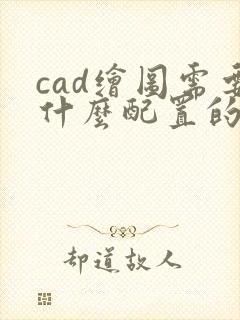 cad繪圖需要
什麼配置的
却道故人